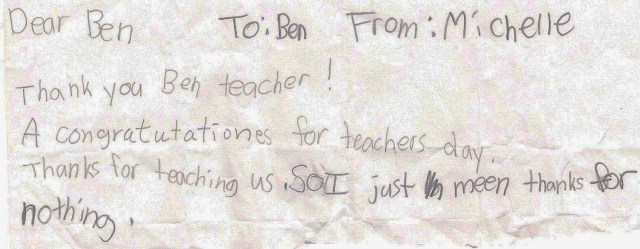 Dear Ben To: Ben From: Michelle
Thank you Ben teacher!
A congratutationes for teachers day.
Thanks for teaching us. So I just meen thanks for
nothing.